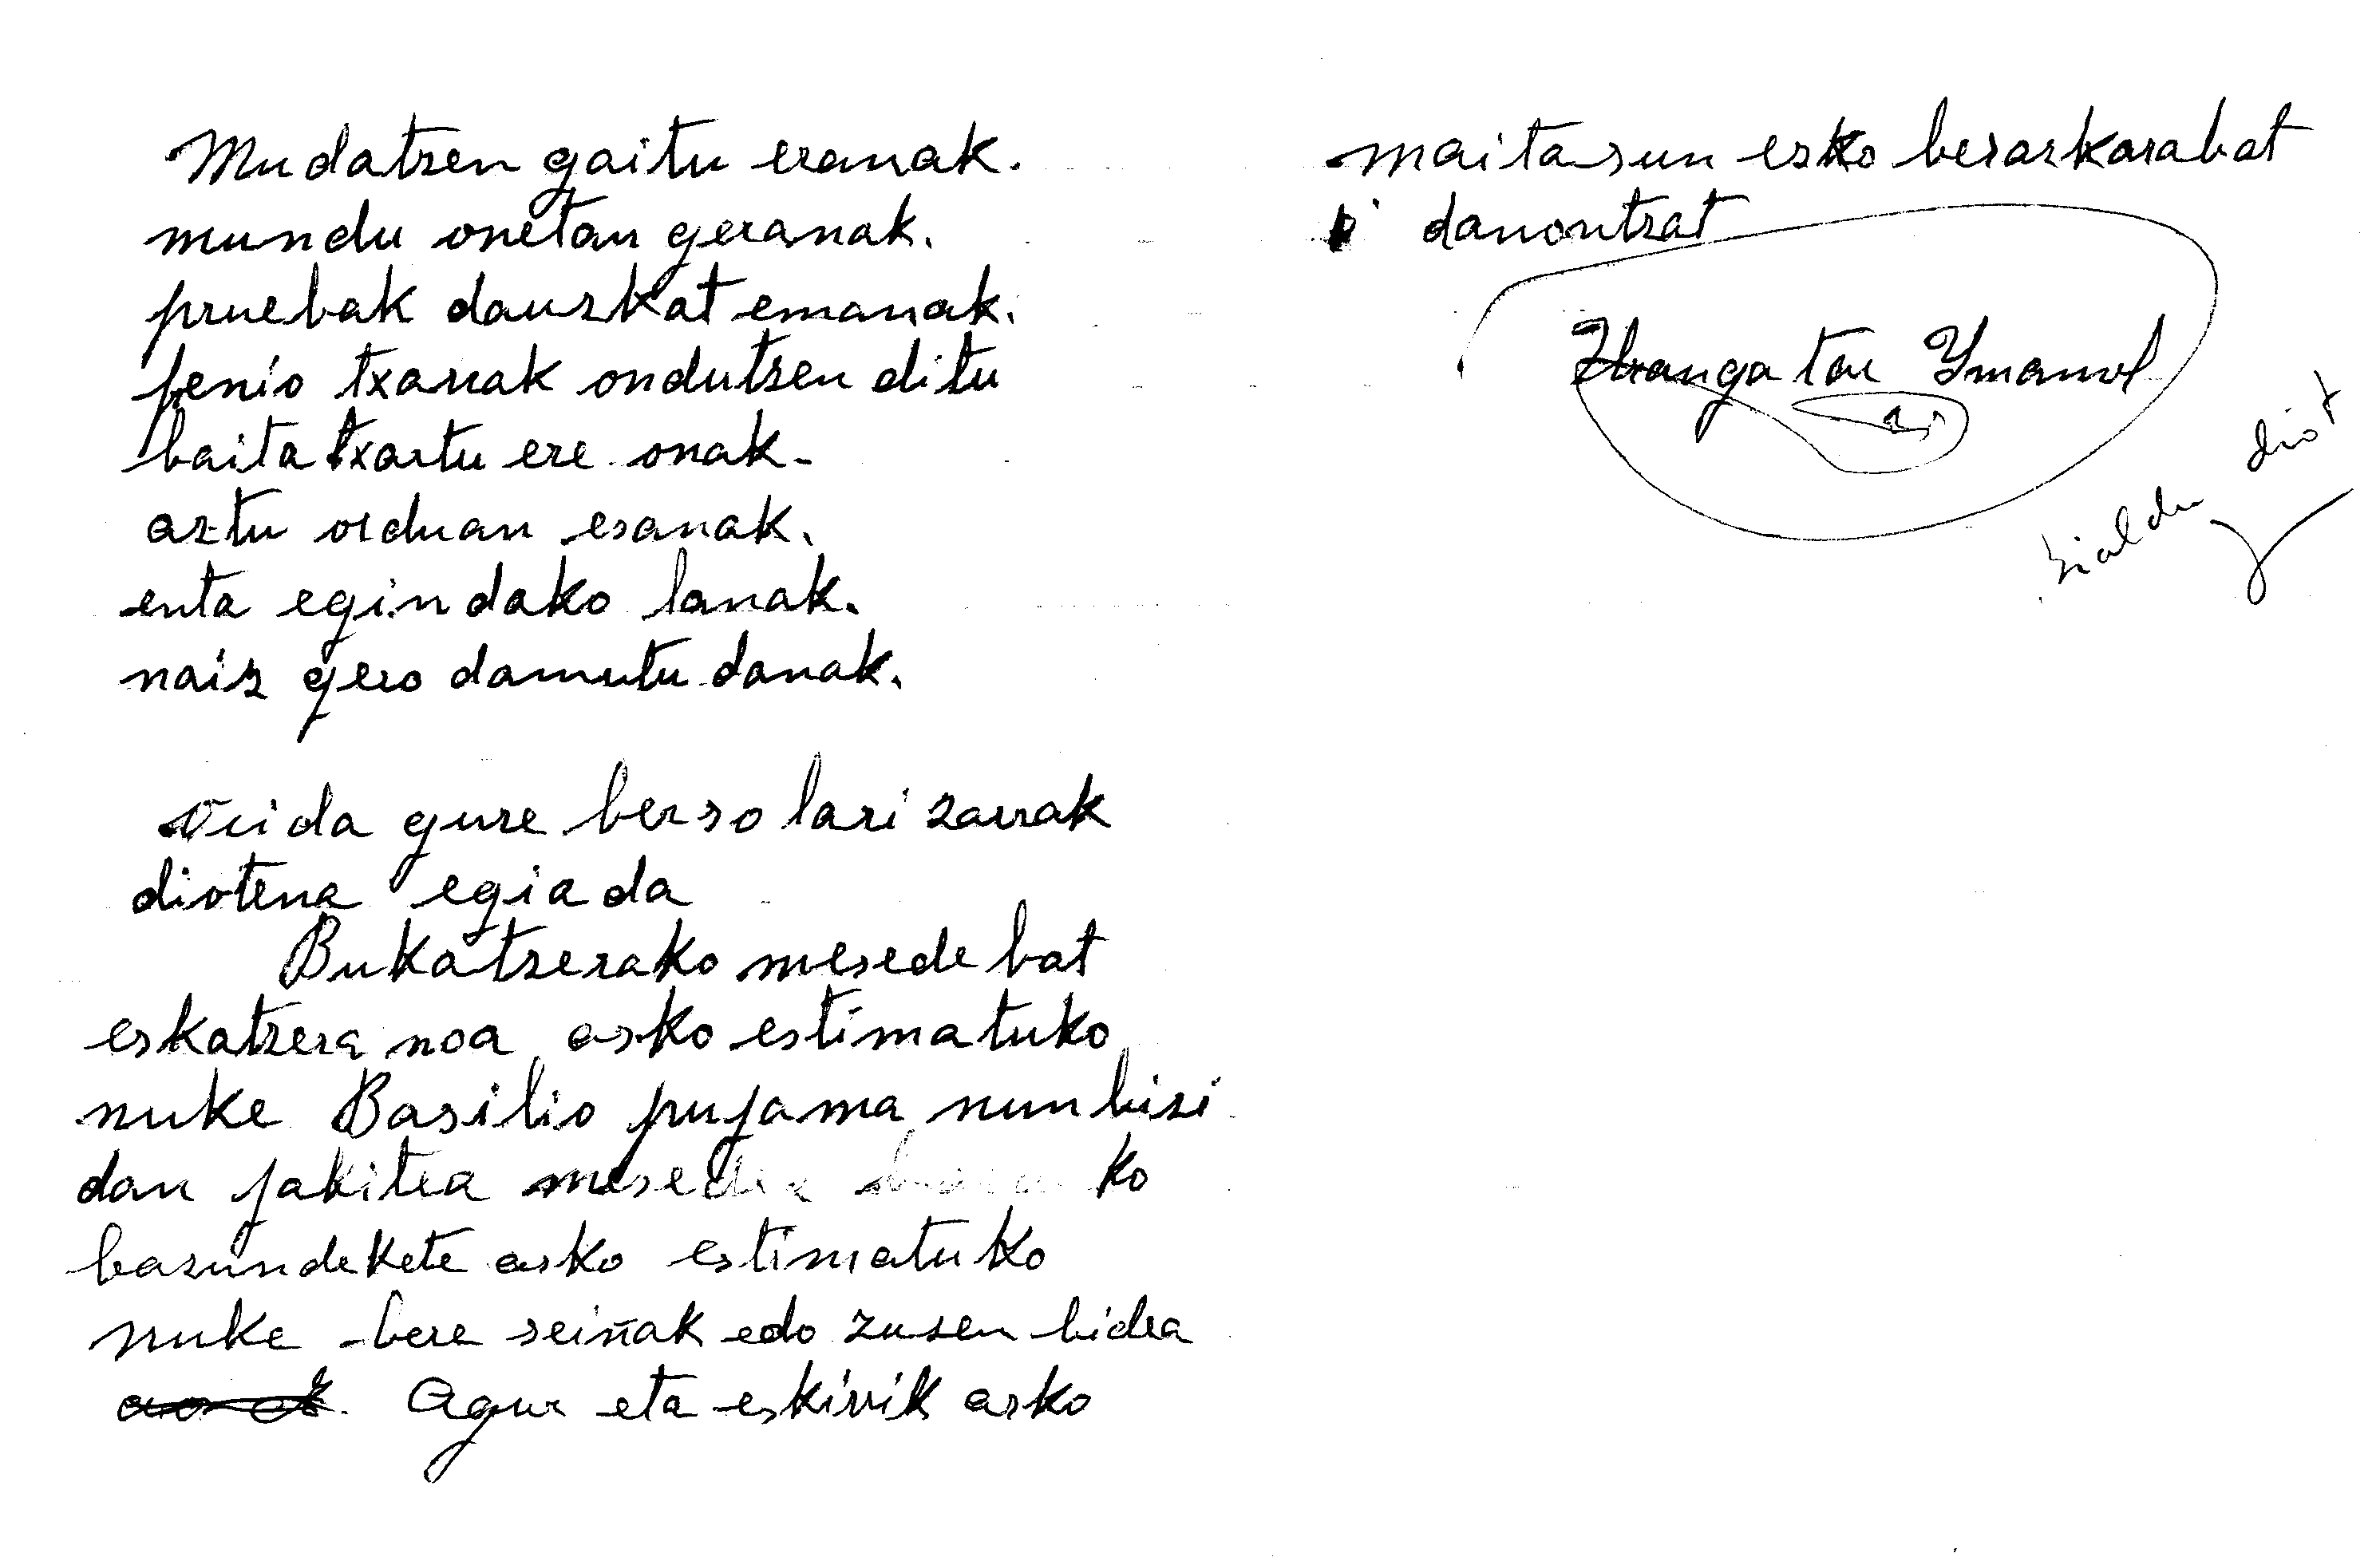 Mudatzen gaitu eranak.
mundu onetan geranak.
pruebak dauzkat emanak.
jenio txarrak ondutzen ditu
baita txartu ere onak.
aztu orduan esanak.
enta egindako lanak.
naiz gero damutu danak.
gure berso lari zarrak
diotena egia da
Bukatzerako mesede bat
eskatzera noa asko estimatuko
nuke Basilio pujama nun bizi
dan jakitea mesedea ko
bazundekete asko estimatuko
nuke bere seiñak edo zuzen bidea
Agur eta eskirrik asko
maitasun esko besarkarabat
danontzat
Uranga tar Ymanol
bialdu diot